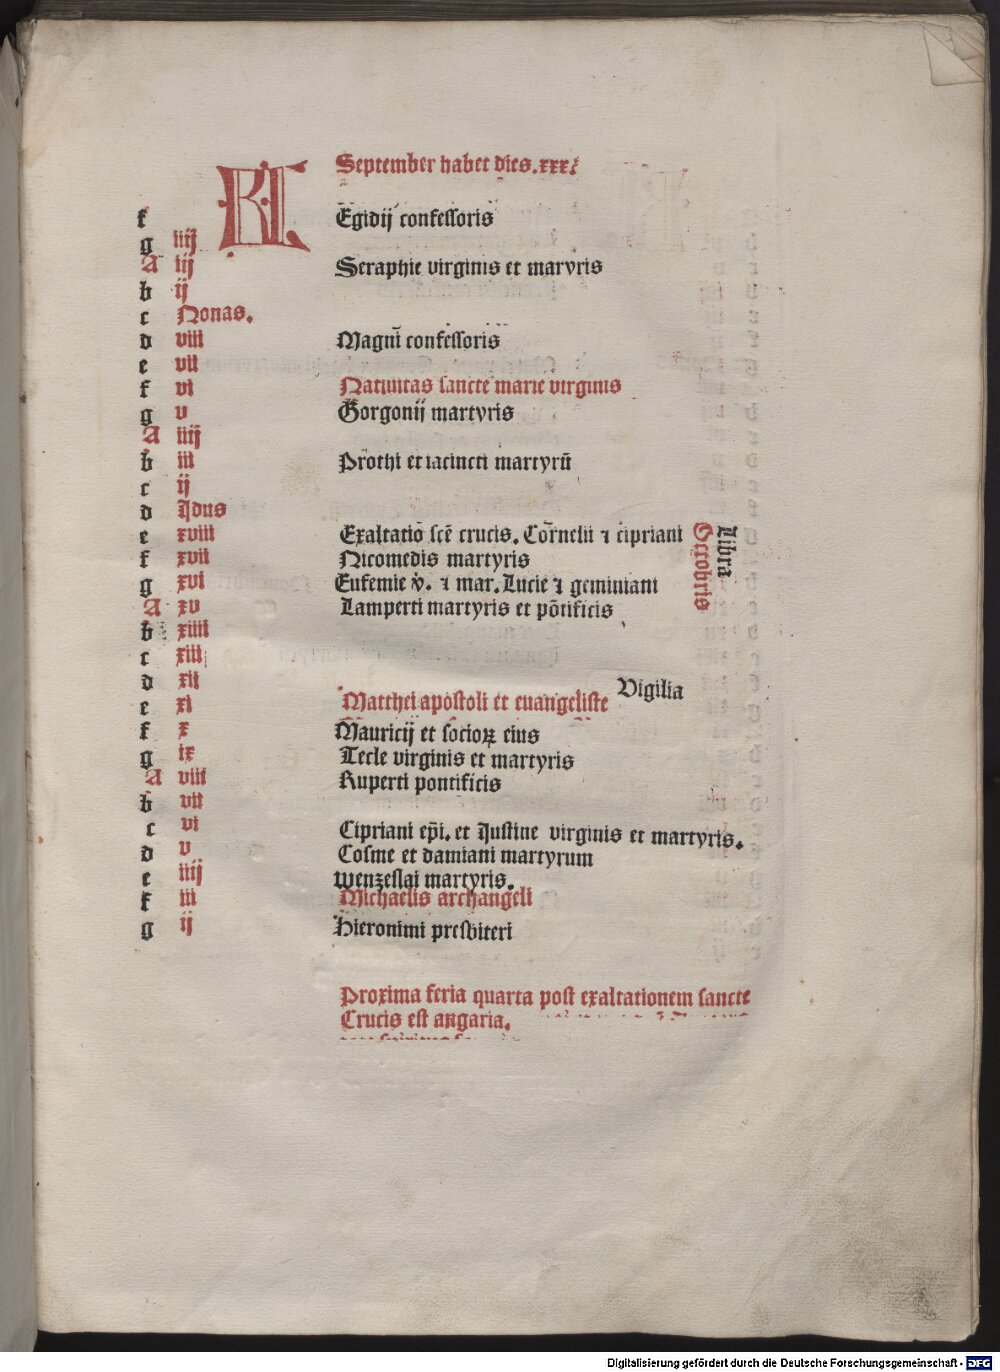 KL September habet dies.xxx.
f Egidij confessoris
g iiij
A iij Seraphie virginis et martyris
b ij
c Nonas.
d viii Magnī confessoris
e vii
f vi Natiuitas sancte marie virginis
g v Gorgonij martyris
A iiij
b iii Prothi et iacincti martyrū
c ij
d Jdus
e xviii Exaltatio scē crucis. Cōrnelii ⁊ cipriani
f xvii Nicomedis martyris
g xvi Eufemie v̄. ⁊ mar. Lucie ⁊ geminiani
A xv Lamperti martyris et pōtificis
Libra
Octobris
b xiiii
c xiii
d xii Vigilia
e xi Matthei apostoli et euangeliste
f x Mauricij et socioꝝ eius
g ix Tecle virginis et martyris
A viii Ruperti pontificis
b vii
c vi Cipriani ep̄i. et Justine virginis et martyris.
d v Cosme et damiani martyrum
e iiij wenzeslai martyris.
f iii Michaelis archangeli
g ij Hieronimi presbiteri
Proxima feria quarta post exaltationem sancte
Crucis est angaria.
Digitalisierung gefördert durch die Deutsche Forschungsgemeinschaft - DFG